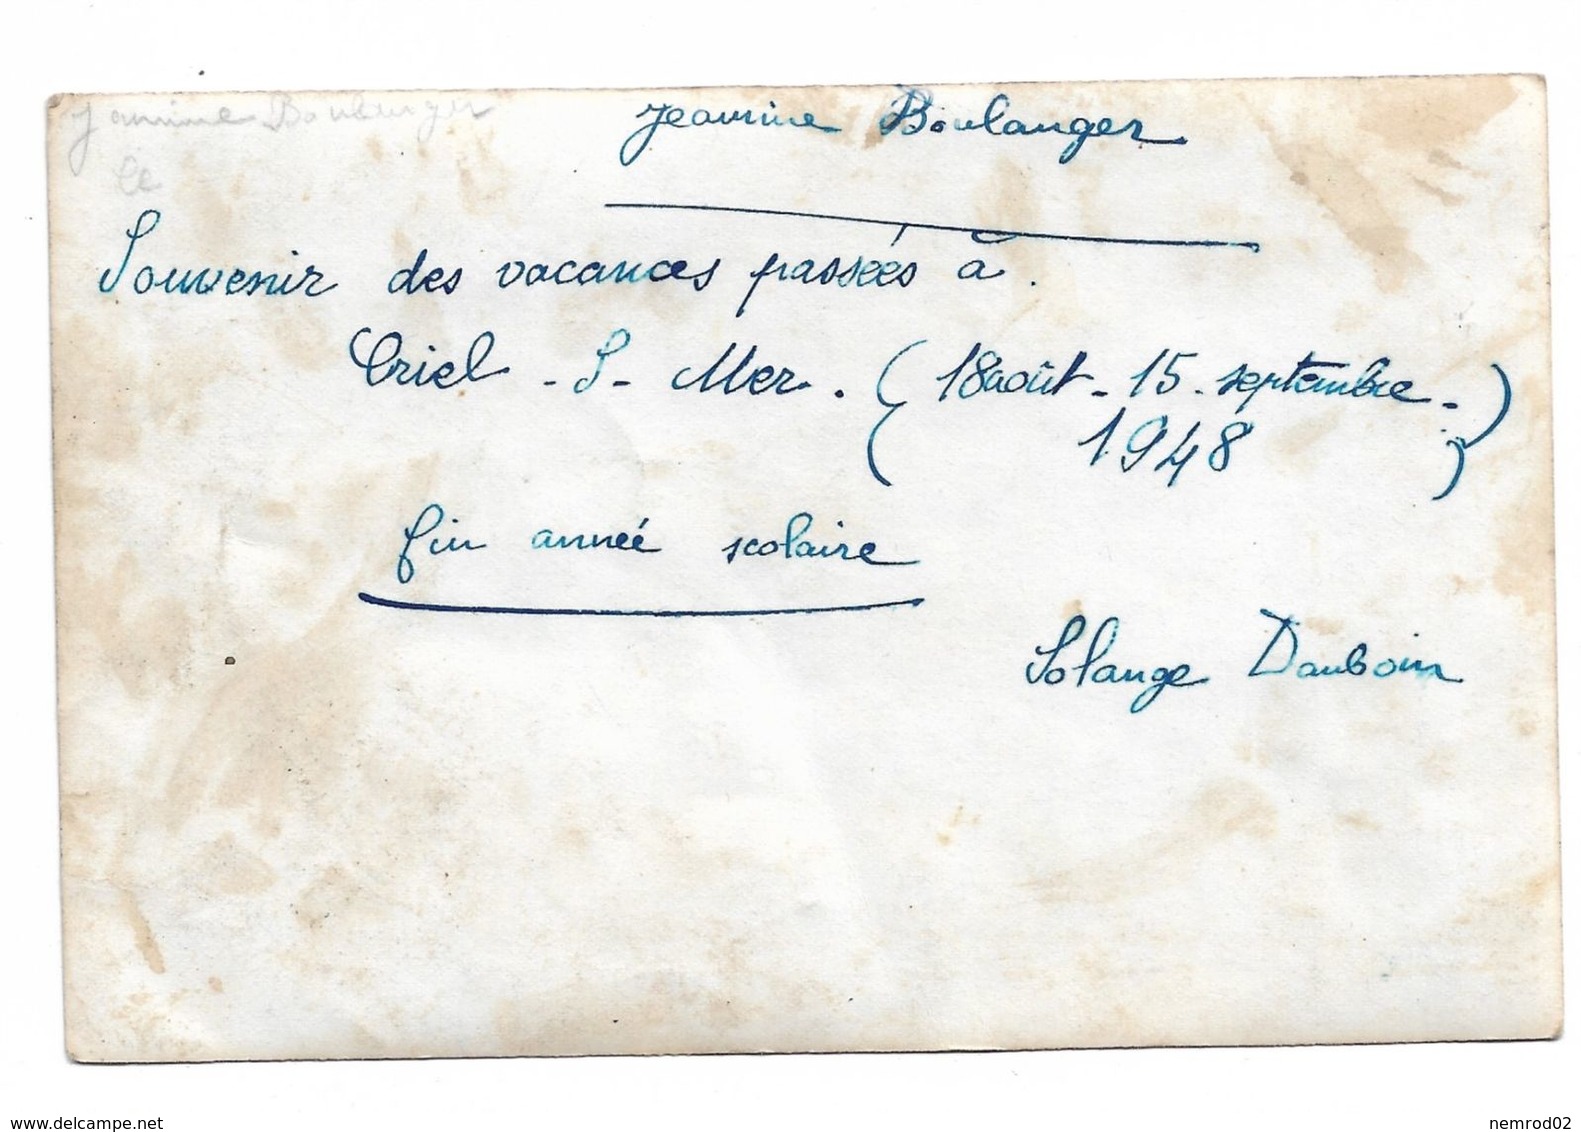 Jeannine Boulanger
Jeannine Boulanger
le
Souvenir des vacances passées à.
Criel - S - Mer. ( 18 août - 15 - septembre - )
( 1948 )
fin année scolaire
Solange Dauboin
www.delcampe.net
nemrod02